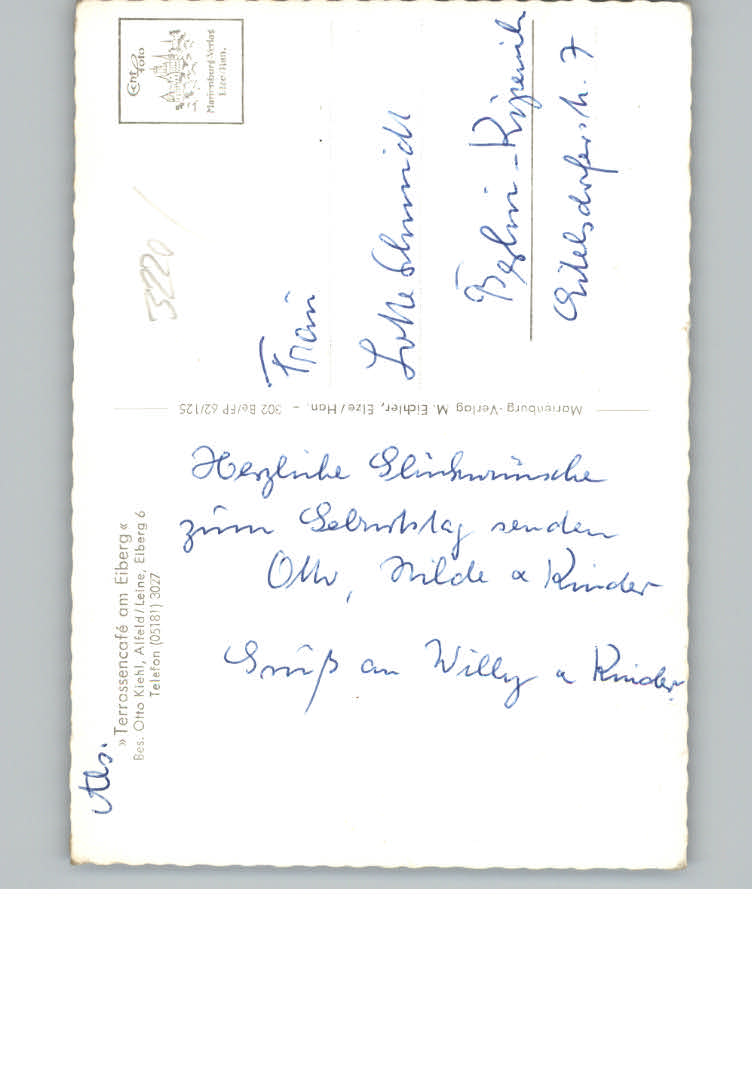 Abs.
»Terrassencafé am Eiberg«
Bes. Otto Kiehl, Alfeld/Leine, Eiberg 6
Telefon (05181) 3027
Herzliche Glückwünsche
zum Geburtstag senden
Otto, Hilde u Kinder
Gruß an Willy u Kinder
Marienburg-Verlag M. Eichler, Elze/Han. - 302 Be/FP 62/125
Cehl Foto
Marienburg Verlag
Elze-Han.
3220/
Frau
Lotte Schmidt
Berlin-Köpenick
7